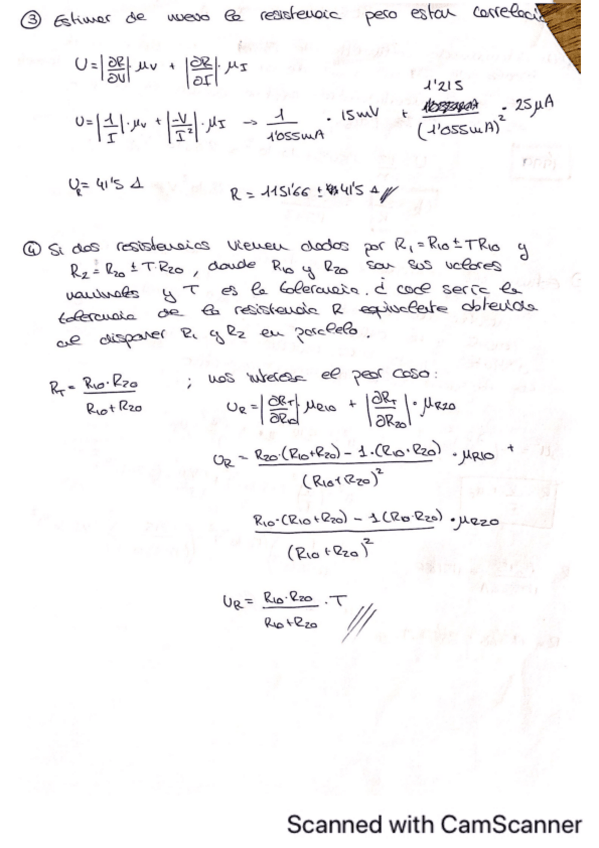 ③ Estimar de nuevo la resistencia pero están correlacio
U = |∂R/∂V| · μv + |∂R/∂I| · μI
U = |1/I| · μv + |-V/I²| · μI → 1/1'055mA · 15mV + 1'215/(1'055mA)² · 25μA
UR = 41'5 Δ
R = 1151'66 ± 41'5 Δ
④ Si dos resistencias vienen dados por R1 = R10 ± TR10 y
R2 = R20 ± T·R20, donde R10 y R20 son sus valores
nominales y T es la tolerancia. ¿ cual sería la
tolerancia de la resistencia R equivalente obtenida
al disponer R1 y R2 en paralelo.
RT = R10·R20 / R10+R20 ; nos interesa el peor caso:
UR = |∂RT/∂R10| · μR10 + |∂RT/∂R20| · μR20
UR = R20·(R10+R20) - 1·(R10·R20) / (R10+R20)² · μR10 +
R10·(R10+R20) - 1(R10·R20) / (R10+R20)² · μR20
UR = R10·R20 / R10+R20 · T
Scanned with CamScanner